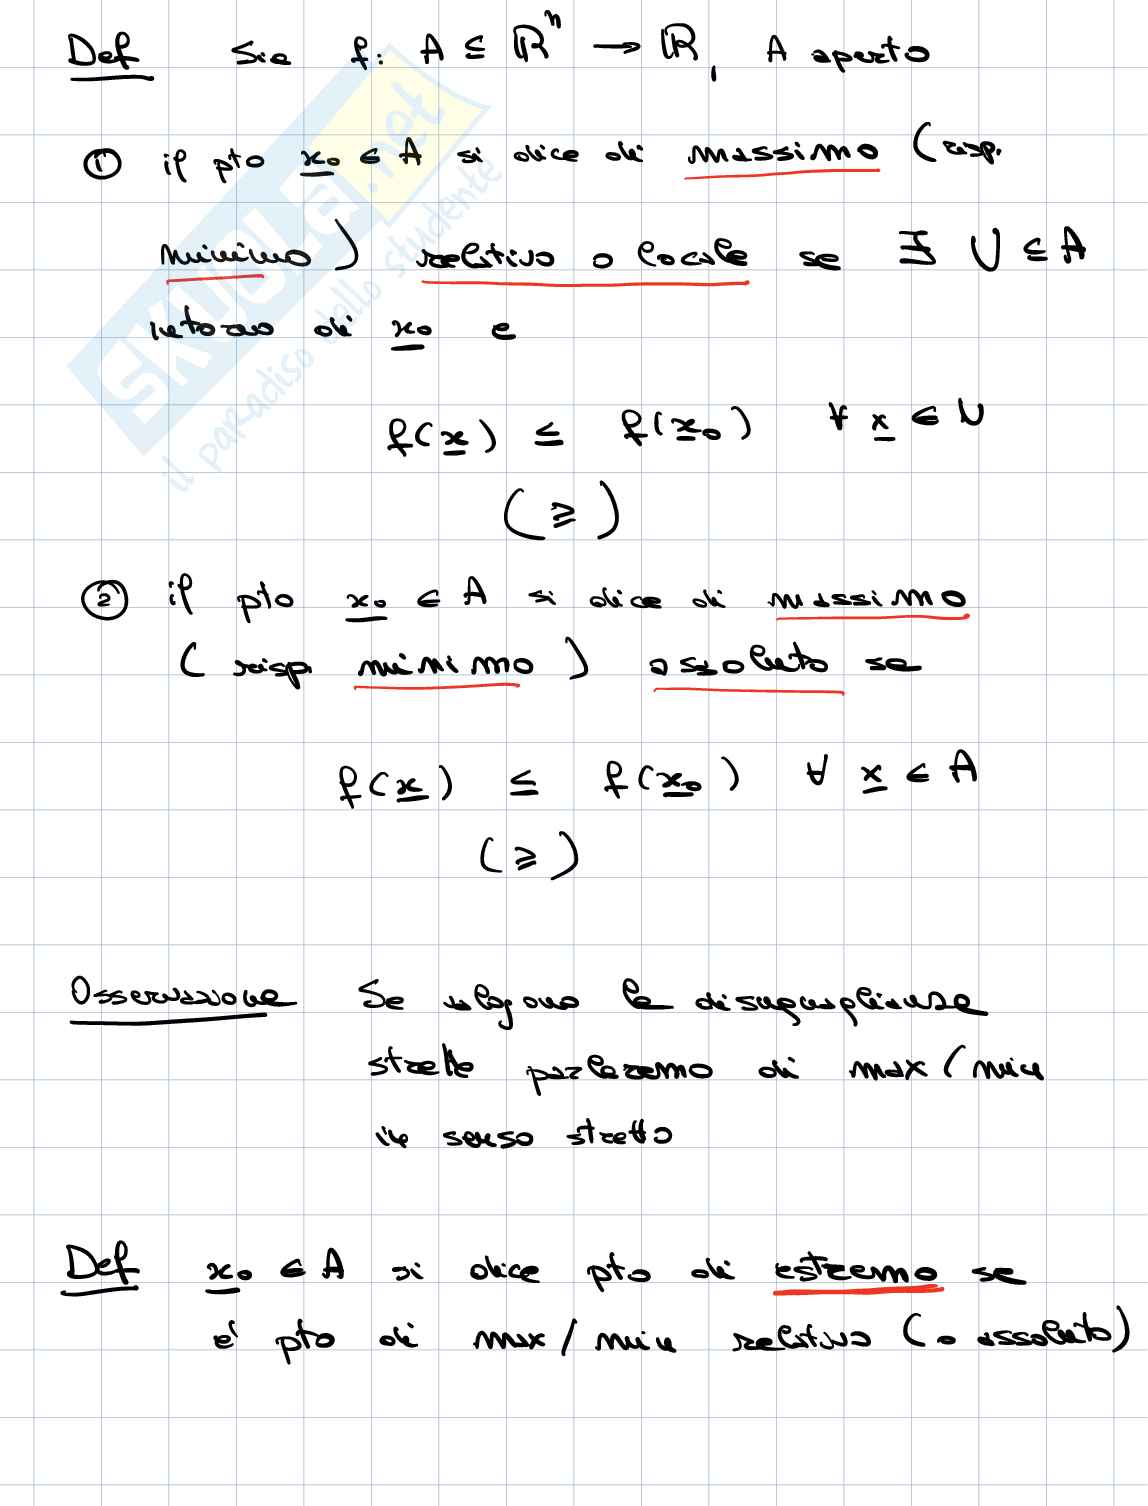 Def Sia f: A ⊆ ℝⁿ → ℝ, A aperto
① il pto x₀ ∈ A si dice di massimo (risp.
minimo) relativo o locale se ∃ U ⊆ A
intorno di x₀ e
f(x) ≤ f(x₀) ∀ x ∈ U
(≥)
② il pto x₀ ∈ A si dice di massimo
(risp. minimo) assoluto se
f(x) ≤ f(x₀) ∀ x ∈ A
(≥)
Osservazione Se valgono le disuguaglianze
strette parleremo di max/min
in senso stretto
Def x₀ ∈ A si dice pto di estremo se
è pto di max/min relativo (o assoluto)
SKUOLA.net
il paradiso dello studente